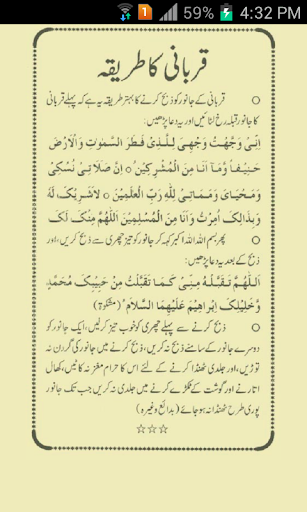 59% 4:32 PM
قربانی کا طریقہ
قربانی کے جانور کو ذبح کرنے کا بہتر طریقہ یہ ہے کہ پہلے قربانی
کا جانور قبلہ رخ لٹائیں اور یہ دعا پڑھیں:
اِنِّیْ وَجَّهْتُ وَجْهِیَ لِلَّذِیْ فَطَرَ السَّمٰوٰتِ وَالْاَرْضَ
حَنِیْفًا وَّمَآ اَنَا مِنَ الْمُشْرِکِیْنَ ○ اِنَّ صَلَاتِیْ نُسُکِیْ
وَمَحْیَایَ وَمَمَاتِیْ لِلّٰهِ رَبِّ الْعٰلَمِیْنَ ○ لَاشَرِیْکَ لَهٗ
وَبِذَالِکَ اُمِرْتُ وَاَنَا مِنَ الْمُسْلِمِیْنَ اَللّٰهُمَّ مِنْکَ لَکَ
پھر بسم اللہ اللہ اکبر کہہ کر جانور کو تیز چھری سے ذبح کریں، اور
ذبح کے بعد یہ دعا پڑھیں:
اَللّٰهُمَّ تَقَبَّلْهُ مِنِّیْ کَمَا تَقَبَّلْتَ مِنْ حَبِیْبِکَ مُحَمَّدٍ
وَّخَلِیْلِکَ اِبْرَاهِیْمَ عَلَیْهِمَا السَّلَامَ" (مشکوٰۃ)
ذبح کرنے سے پہلے چھری کو خوب تیز کرلیں، ایک جانور کو
دوسرے جانور کے سامنے ذبح نہ کریں، ذبح کرنے میں جانور کی گردن نہ
توڑیں، اور جلدی ٹھنڈا کرنے کے لئے اس کا حرام مغز نہ کاٹیں، کھال
اتارنے اور گوشت کے ٹکڑے کرنے میں جلدی نہ کریں جب تک جانور
پوری طرح ٹھنڈا نہ ہو جائے (بدائع وغیرہ)